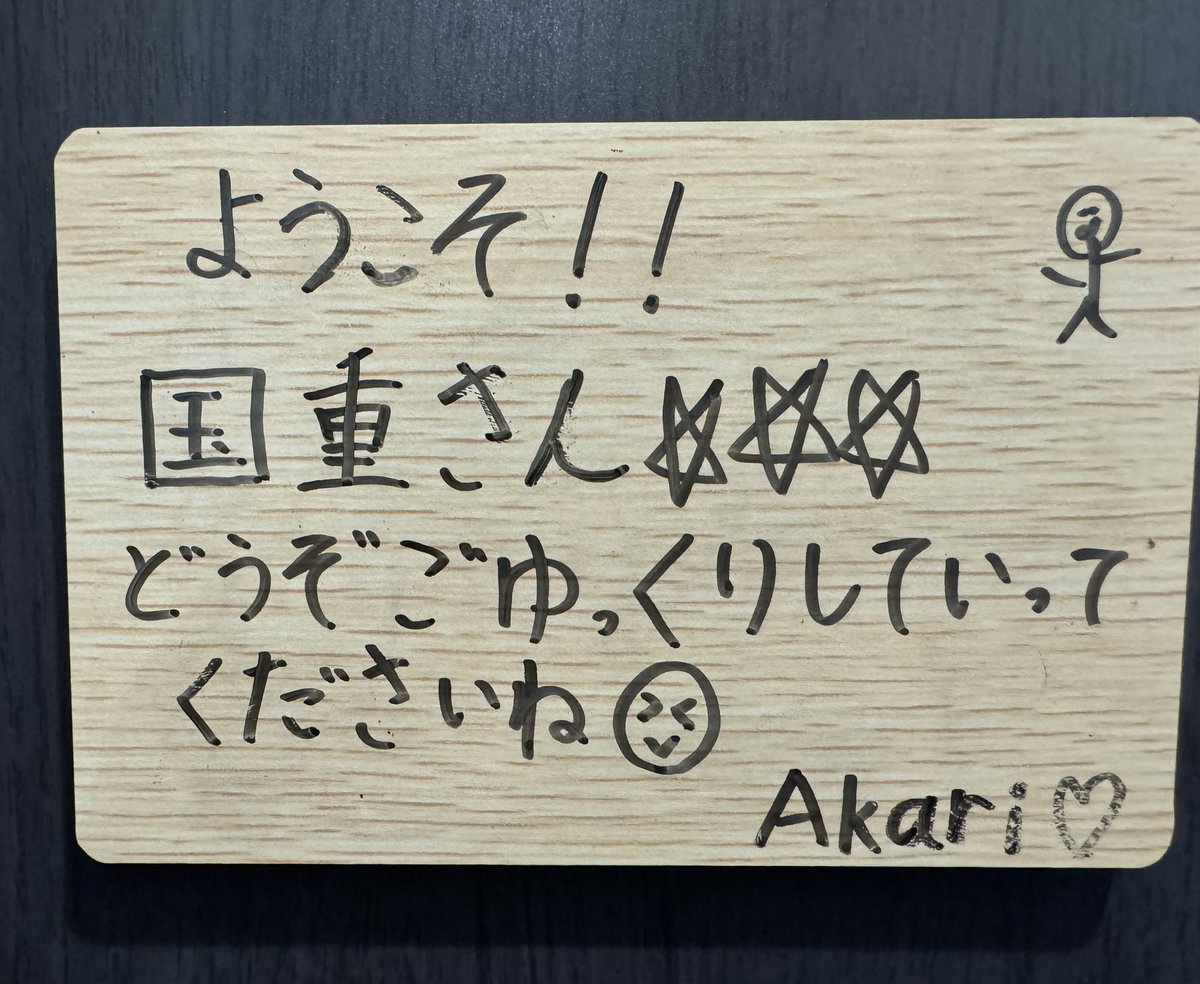 ようこそ!!
国重さん☆☆☆
どうぞごゆっくりしていって
くださいね
Akari♡